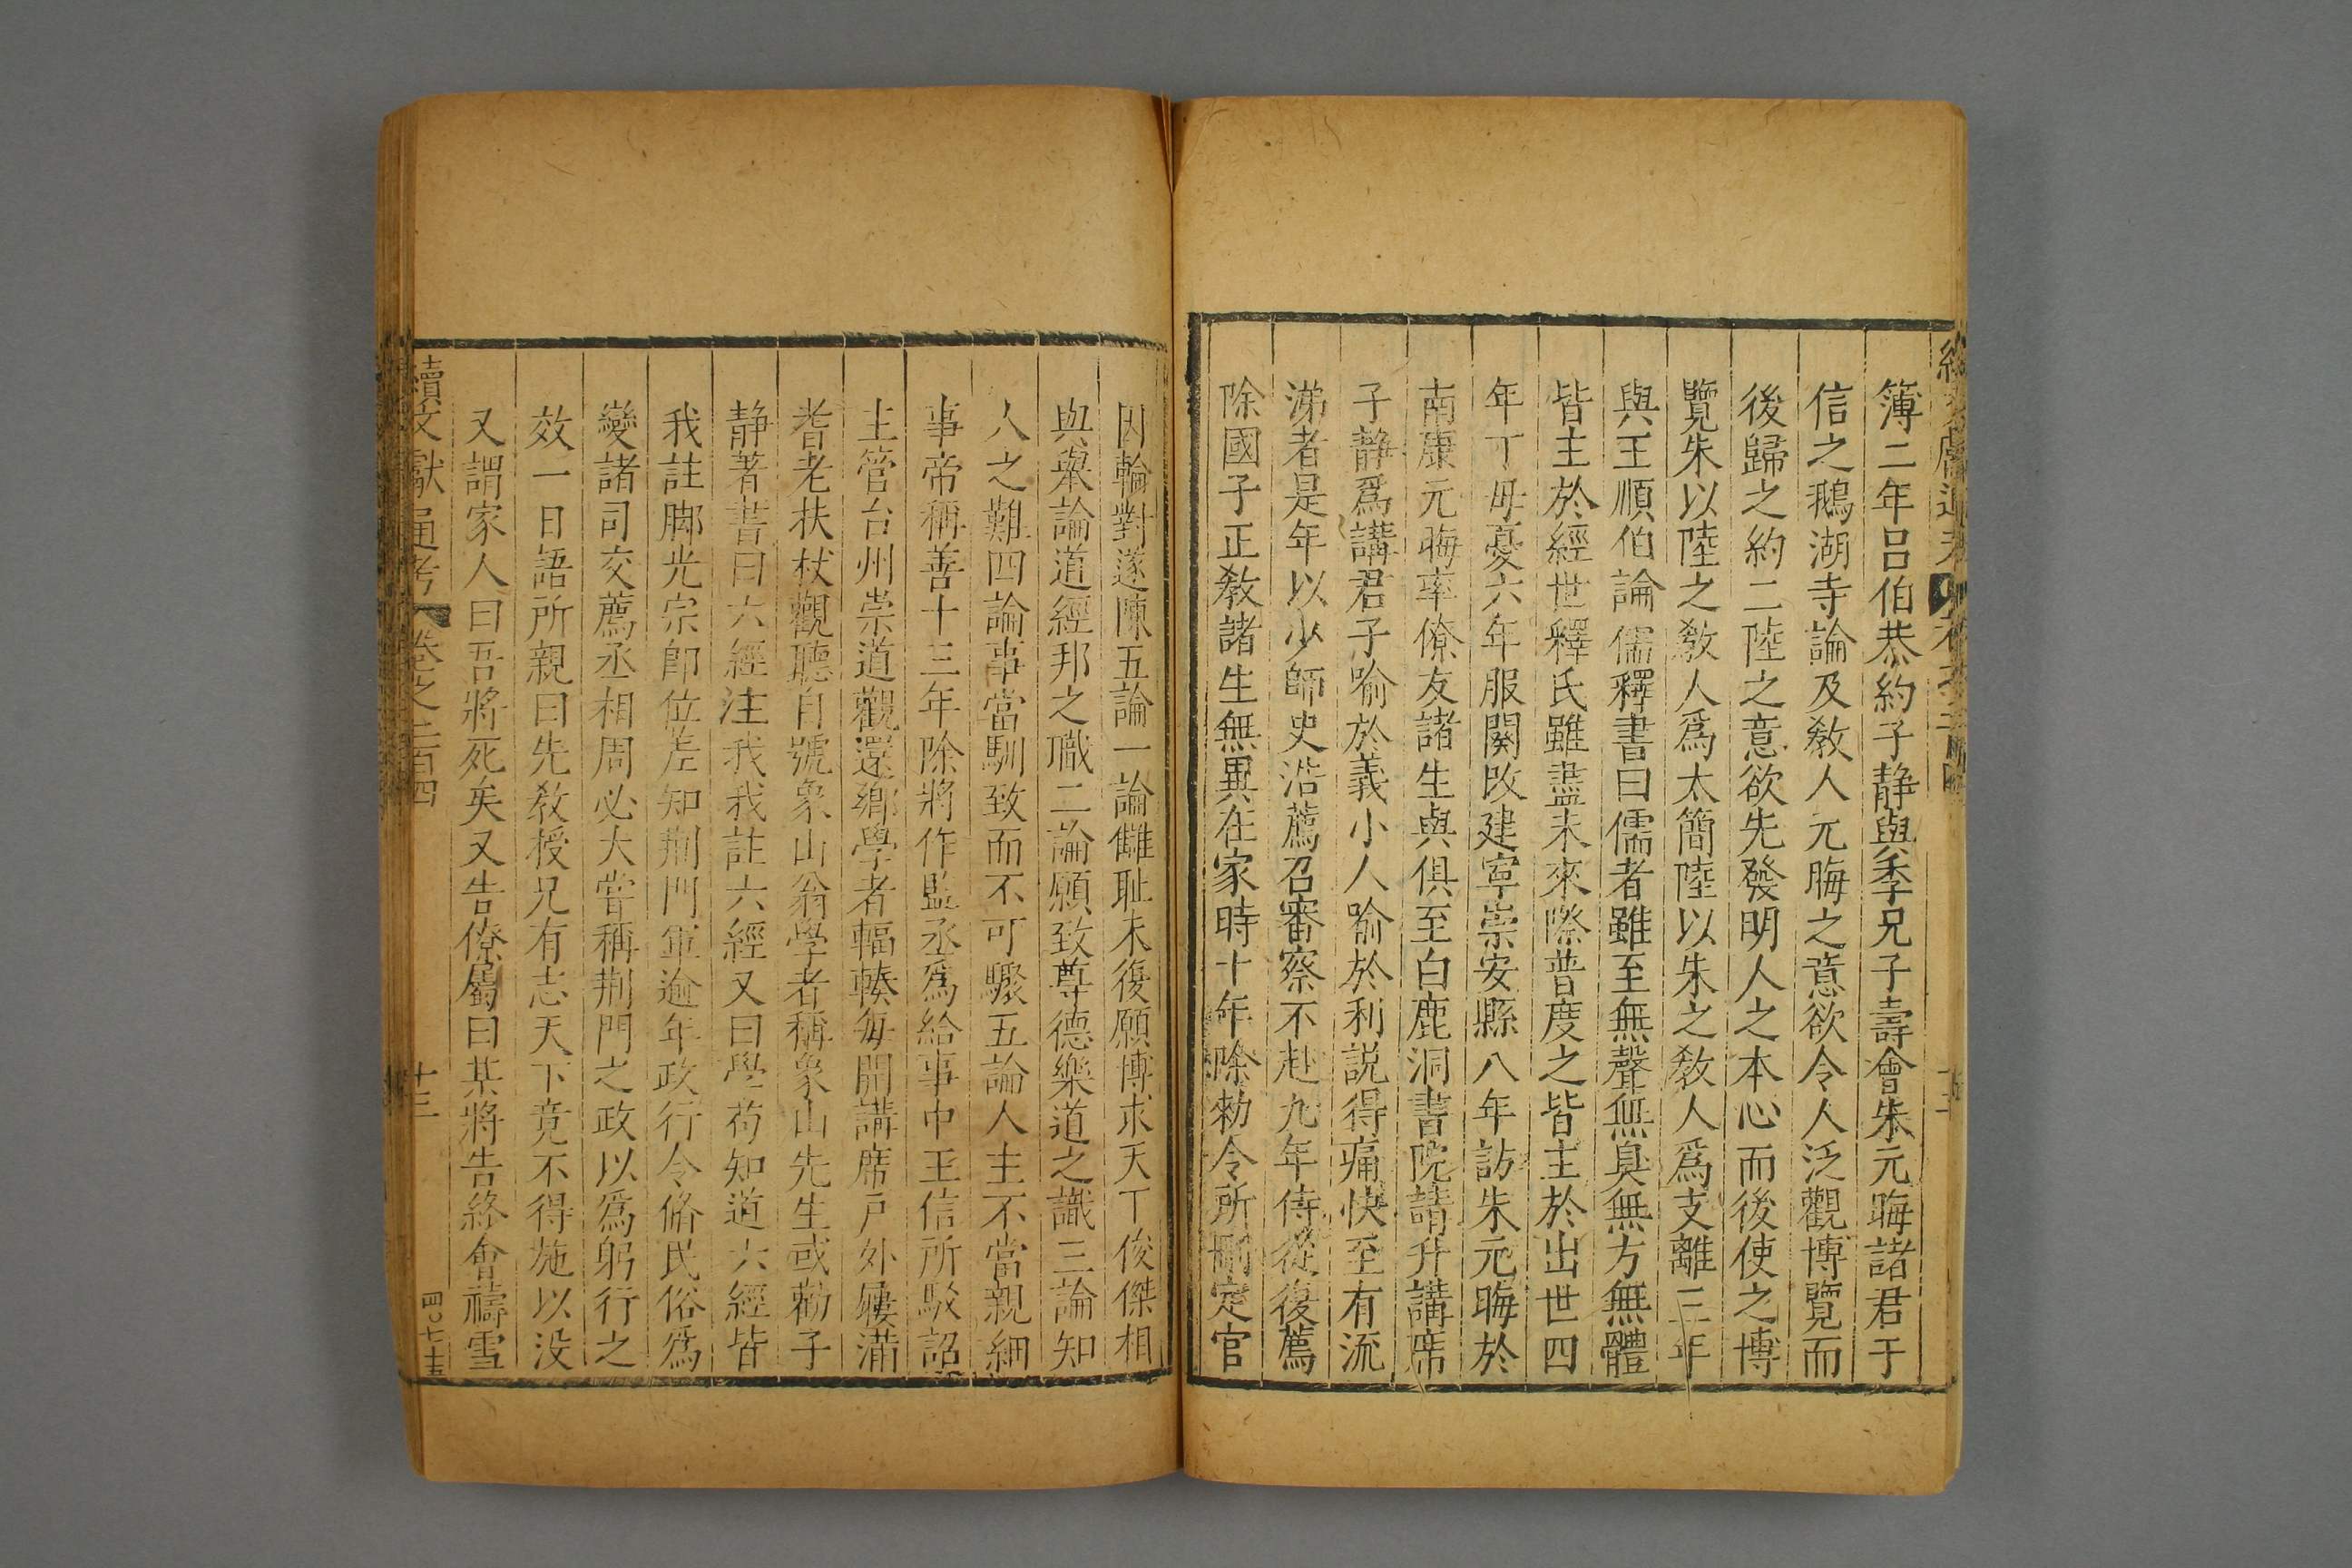 簿二年呂伯恭約子静與季兄子壽會朱元晦諸君于
信之鵝湖寺論及敎人元晦之意欲令人泛觀博覽而
後歸之約二陸之意欲先發明人之本心而後使之博
覽朱以陸之敎人爲太簡陸以朱之敎人爲支離三年
與王順伯論儒釋書曰儒者雖至無聲無臭無方無體
皆主於經世釋氏雖盡未來際普度之皆主於出世四
年丁毋憂六年服闋改建寜崇安縣八年訪朱元晦於
南康元晦率僚友諸生與俱至白鹿洞書院請升講席
子静爲講君子喻於義小人喻於利説得痛快至有流
涕者是年以少師史浩薦召審察不赴九年侍從復薦
除國子正敎諸生無異在家時十年除勑令所刪定官
因輪對遂陳五論一論讎耻未復願博求天下俊傑相
與舉論道經邦之職二論願致尊德樂道之識三論知
人之難四論事當馴致而不可驟五論人主不當親細
事帝稱善十三年除將作監丞爲給事中王信所駁詔
主管台州崇道觀還鄉學者輻輳毎開講席戸外屨滿
耆老扶杖觀聽自號象山翁學者稱象山先生或勸子
静著書曰六經注我我註六經又曰學苟知道六經皆
我註脚光宗卽位差知荆門軍逾年政行令脩民俗爲
變諸司交薦丞相周必大嘗稱荆門之政以爲躬行之
效一日語所親曰先敎授兄有志天下竟不得施以没
又謂家人曰吾將死矣又告僚屬曰某將告終會禱雪
續文獻通考 卷之二百四 十三 四〇七十五